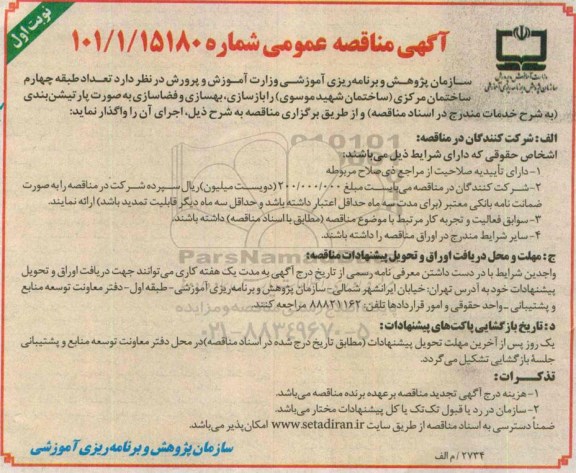 نوبت اول
آگهی مناقصه عمومی شماره ۱۰۱/۱/۱۵۱۸۰
سازمان پژوهش و برنامه‌ریزی آموزشی وزارت آموزش و پرورش در نظر دارد تعداد طبقه چهارم
ساختمان مرکزی (ساختمان شهید موسوی) را بازسازی، بهسازی و فضاسازی به صورت پارتیشن‌بندی
(به شرح خدمات مندرج در اسناد مناقصه) و از طریق برگزاری مناقصه به شرح ذیل، اجرای آن را واگذار نماید:
الف: شرکت کنندگان در مناقصه:
اشخاص حقوقی که دارای شرایط ذیل می‌باشند:
۱-دارای تأییدیه صلاحیت از مراجع ذی‌صلاح مربوطه
۲-شرکت کنندگان در مناقصه می‌بایست مبلغ ۲۰۰/۰۰۰/۰۰۰ (دویست میلیون) ریال سپرده شرکت در مناقصه را به صورت
ضمانت نامه بانکی معتبر (برای مدت سه ماه حداقل اعتبار داشته باشد و حداقل سه ماه دیگر قابلیت تمدید باشد) ارائه نمایند.
۳-سوابق فعالیت و تجربه کار مرتبط با موضوع مناقصه (مطابق با اسناد مناقصه) داشته باشند.
۴-سایر شرایط مندرج در اوراق مناقصه را داشته باشند.
ج: مهلت و محل دریافت اوراق و تحویل پیشنهادات مناقصه:
واجدین شرایط با در دست داشتن معرفی نامه رسمی از تاریخ درج آگهی به مدت یک هفته کاری می‌توانند جهت دریافت اوراق و تحویل
پیشنهادات خود به آدرس تهران-خیابان ایرانشهر شمالی-سازمان پژوهش و برنامه‌ریزی آموزشی-طبقه اول-دفتر معاونت توسعه منابع
و پشتیبانی-واحد حقوقی و امور قراردادها تلفن: ۸۸۸۲۱۱۶۲ مراجعه کنند.
د: تاریخ بازگشایی پاکت‌های پیشنهادات:
یک روز پس از آخرین مهلت تحویل پیشنهادات (مطابق تاریخ درج شده در اسناد مناقصه) در محل دفتر معاونت توسعه منابع و پشتیبانی
جلسهٔ بازگشایی تشکیل می‌گردد.
تذکرات:
۱-هزینه درج آگهی تجدید مناقصه بر عهده برنده مناقصه می‌باشد.
۲-سازمان در رد یا قبول تک‌تک یا کل پیشنهادات مختار می‌باشد.
ضمناً دسترسی به اسناد مناقصه از طریق سایت www.setadiran.ir امکان‌پذیر می‌باشد.
سازمان پژوهش و برنامه‌ریزی آموزشی
۲۷۳۴/م الف
ParsNamad
۰۲۱-۸۸۳۴۹۶۷۰-۵